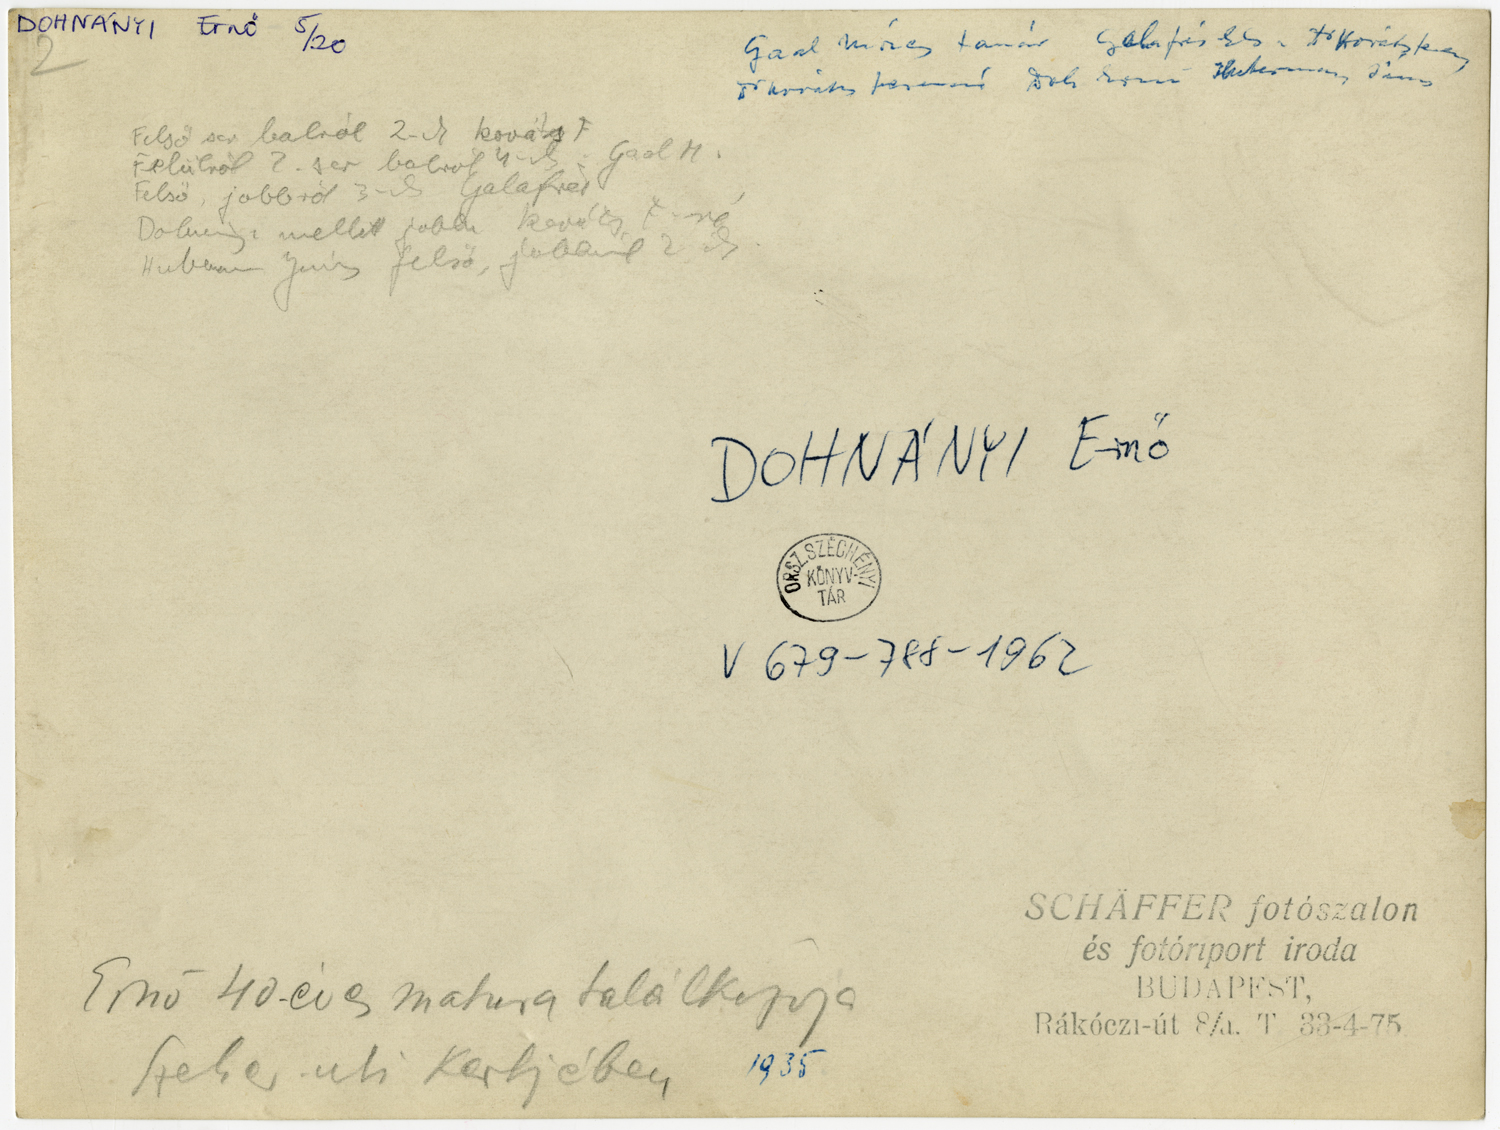 DOHNÁNYI Ernő 5/20
2
Gaal Móric tanár Galafrés Els. Dr Kováts Ferenc
Dr Kováts Ferencné Doh Ernő János
Felső sor balról 2-ik Kováts F
Felülről 2. sor balról 4-ik: Gaal M.
Felső, jobbról 3-ik Galafrés
Dohnányi mellett jobbra Kováts F-né
János felső, jobbról 2-ik.
DOHNÁNYI Ernő
ORSZ. SZÉCHÉNYI
KÖNYV-
TÁR
V 679-788-1962
SCHÄFFER fotószalon
és fotóriport iroda
BUDAPEST,
Rákóczi-út 8/a. T 33-4-75
Ernő 40-éves matura találkozója
Szeher-uti Kertjében 1935